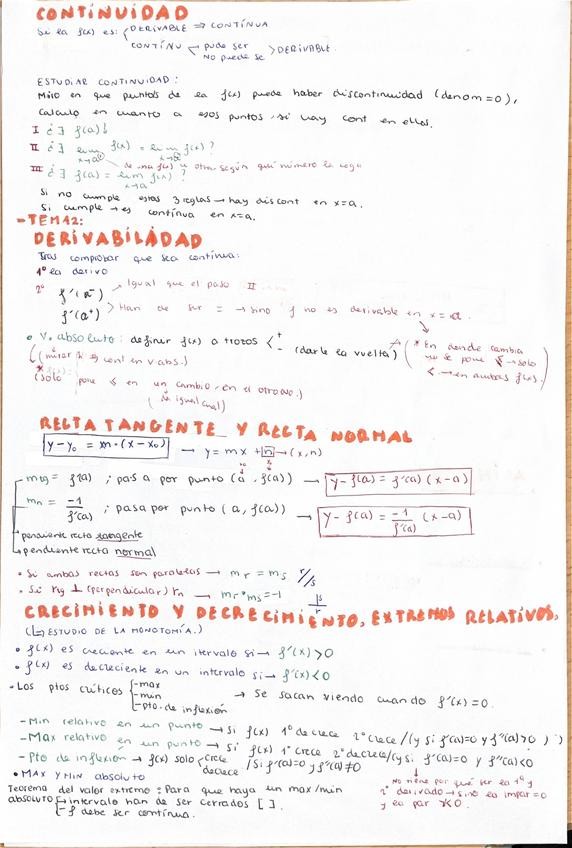 CONTINUIDAD
Si la f(x) es: DERIVABLE ⇒ CONTÍNUA
CONTÍNU pude ser DERIVABLE.
NO puede se
ESTUDIAR CONTINUIDAD:
Miro en que puntos de la f(x) puede haber discontinuidad (denom=0),
Calculo en cuanto a esos puntos, si hay cont en ellos.
I ¿∃ f(a)
II ¿∃ lim f(x) = lim f(x)?
x→a x→a
de una f(x) u otra según qué número la coga
III ¿∃ f(a) = lim f(x)?
x→a
Si no cumple estas 3 reglas → hay discont en x=a.
Si cumple → es contínua en x=a.
-TEMA2:
DERIVABILIDAD
Tras comprobar que sea contínua:
1º la derivo
2º f'(a⁻) Igual que el paso II
f'(a⁺) > Han de ser = → sino f no es derivable en x=a.
• V. absoluto: definir f(x) a trozos < + - (darle la vuelta) (* En donde cambia
no se pone ≤ → solo
< → en ambas f(x).
(mirar si es cont en v abs.)
(solo pone ≤ en un cambio, en el otro no.)
(da igual cual)
RECTA TANGENTE Y RECTA NORMAL
y-y₀ = m·(x-x₀) → y = mx + n → (x,n)
m tg = f'(a) ; pasa por punto (a, f(a)) → y-f(a) = f'(a) (x-a)
m n = -1/f'(a) ; pasa por punto (a, f(a)) → y-f(a) = -1/f'(a) (x-a)
pendiente recta tangente
pendiente recta normal
• Si ambas rectas son paralelas → m r = m s r//s
• Si r tg ⊥ (perpendicular) r n → m r · m s = -1
CRECIMIENTO Y DECRECIMIENTO, EXTREMOS RELATIVOS.
(↳ ESTUDIO DE LA MONOTOMÍA.)
• f(x) es creciente en un itervalo si → f'(x) > 0
• f(x) es decreciente en un intervalo si → f'(x) < 0
• Los ptos críticos -max
-min → Se sacan viendo cuando f'(x) = 0.
-pto. de inflexión
- Min relativo en un punto → Si f(x) 1º decrece 2º crece / (y si f'(a)=0 y f''(a)>0)
- Max relativo en un punto → si f(x) 1º crece 2º decrece / (y si f'(a)=0 y f''(a)<0
- Pto de inflexión → f(x) solo crece
decrece / Si f'(a)=0 y f''(a)≠0
• MAX Y MIN ABSOLUTO
No tiene por qué ser la 1º y
2º derivada → sino la impar=0
y la par
Teorema del valor extremo: Para que haya un max/min
absoluto intervalo han de ser cerrados [ ].
- f debe ser contínua.